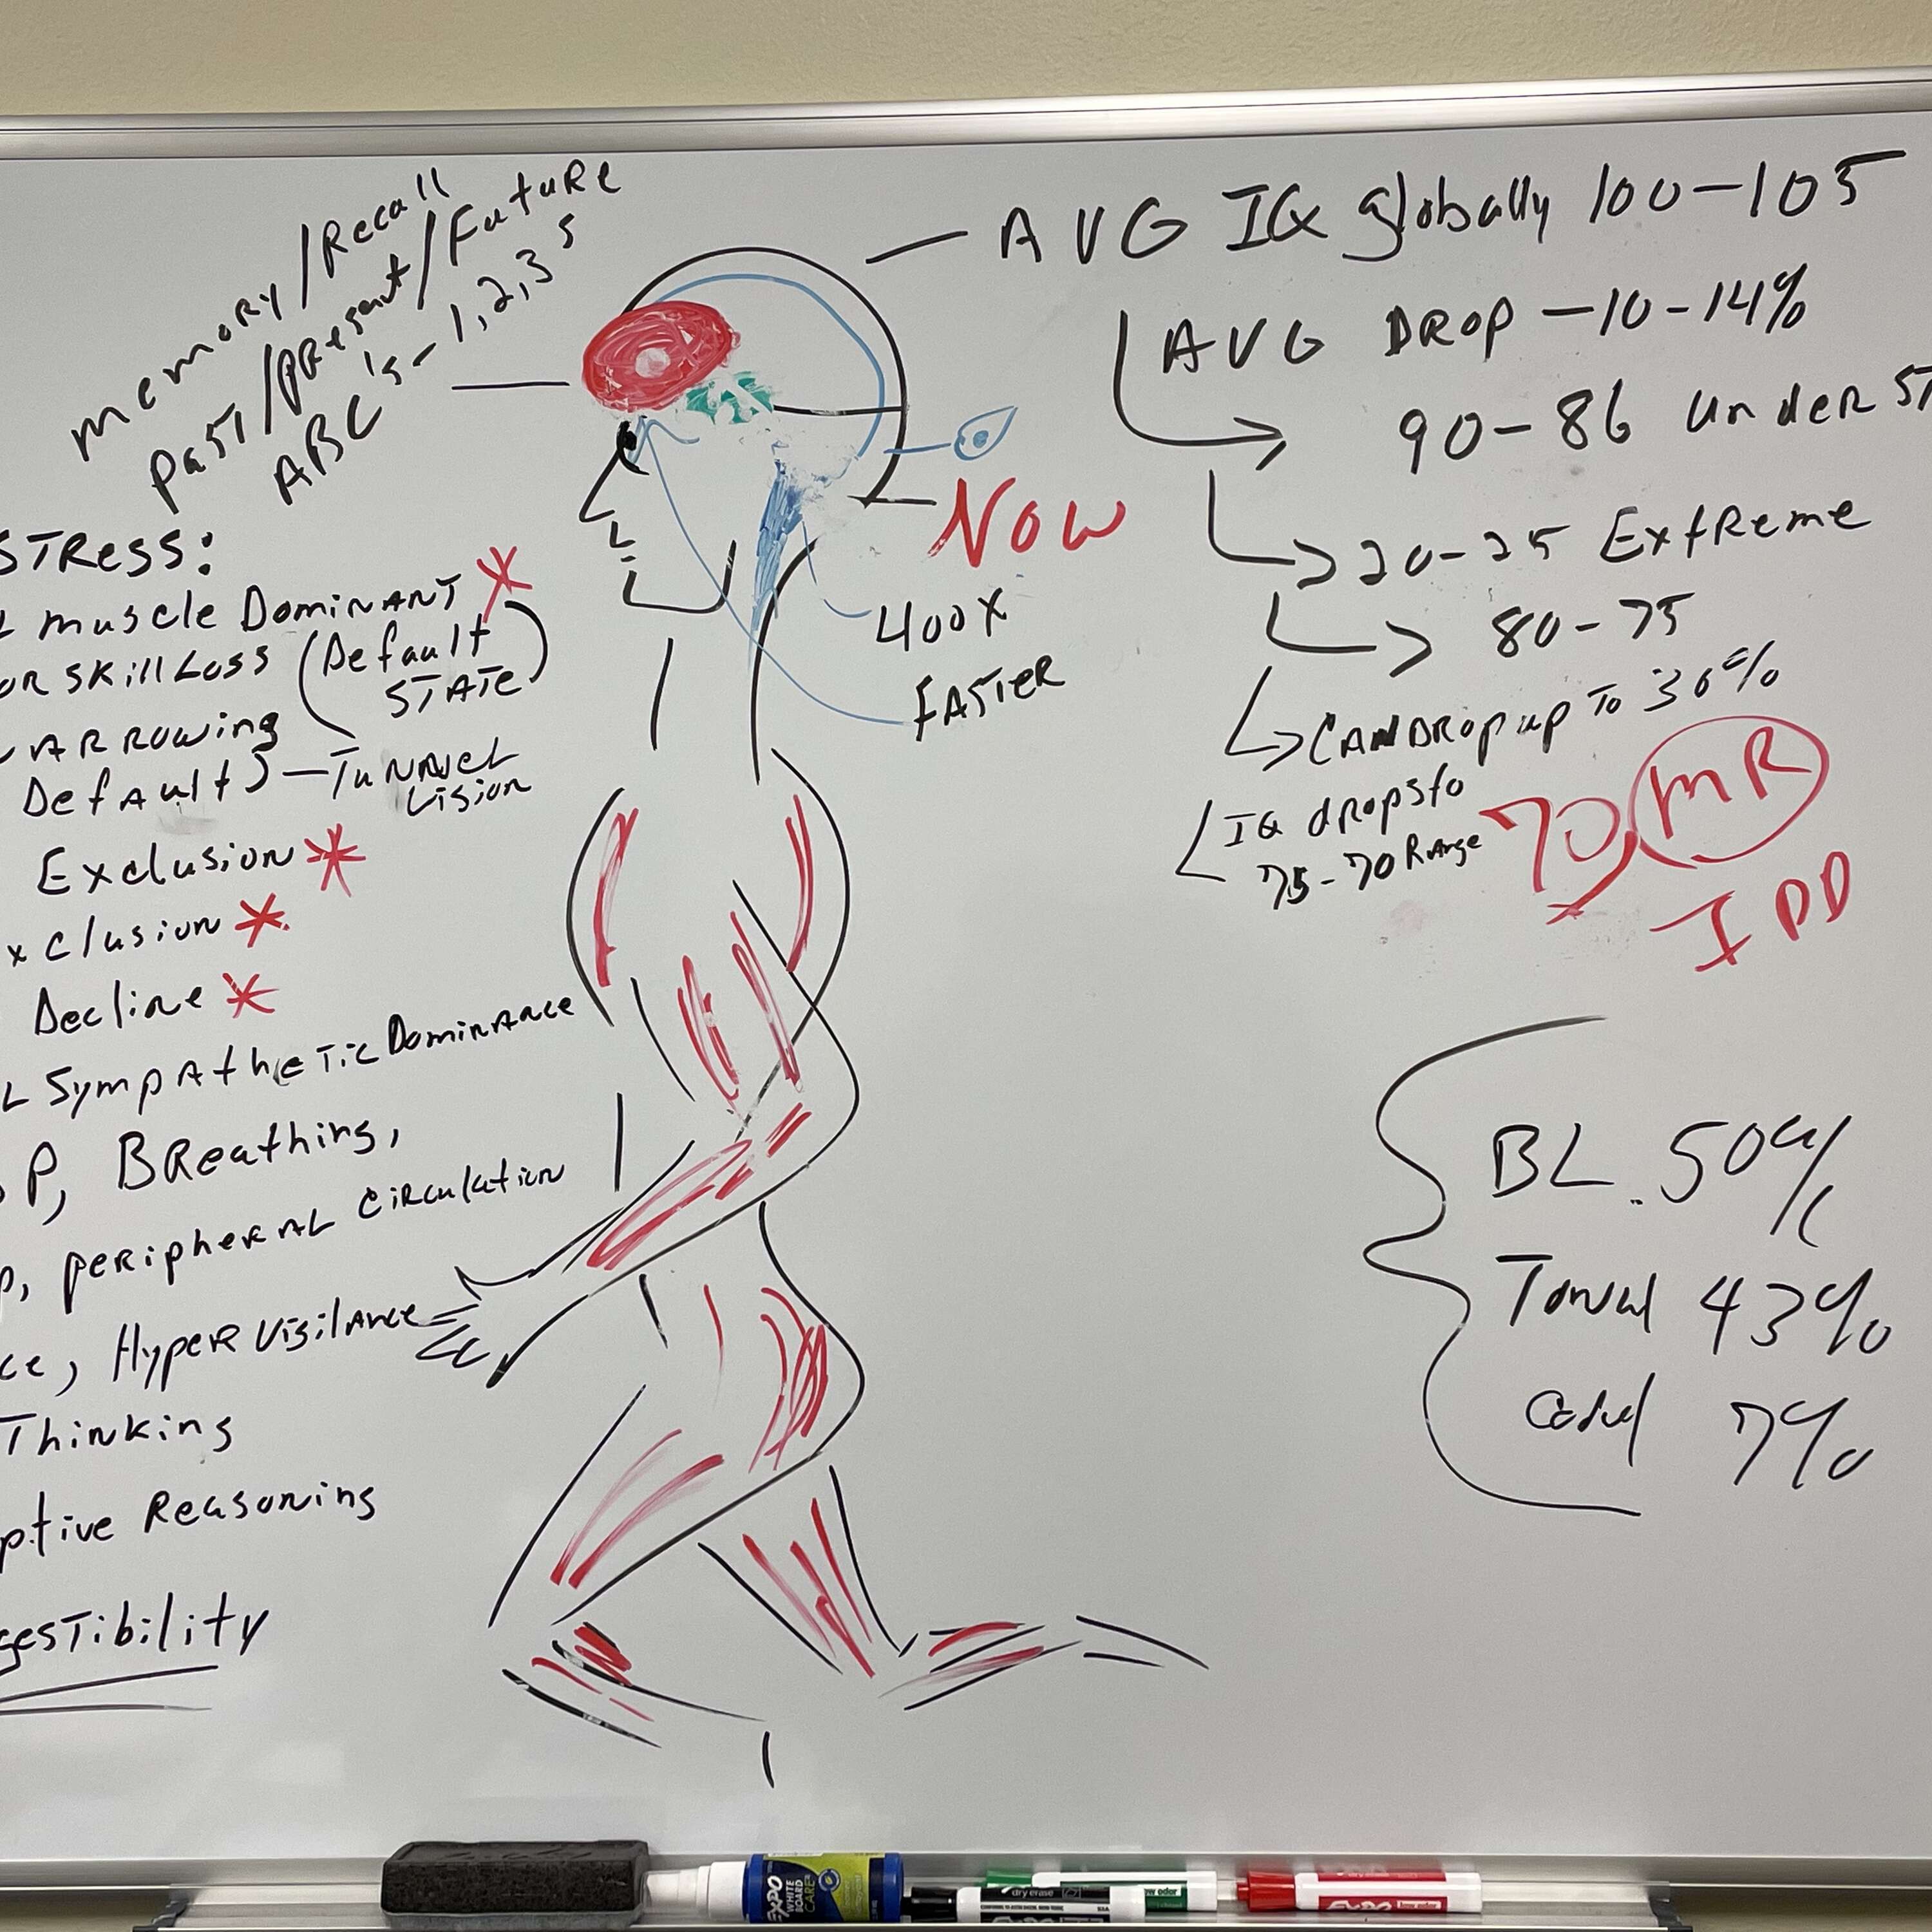 memory/Recall
past/present/Future
ABC's - 1,2,3s
STRess:
muscle Dominant
SKill Loss (Default
STATE)
Default) - Tunnel
Vision
Exclusion
xclusion
Decline
L Sympathetic Dominance
P, BReathing,
peripheral circulation
ce, Hyper Vigilance
Thinking
ptive Reasoning
gesTibility
AVG IQ globally 100-105
AVG DROP -10-14%
90-86 under ST
NOW
400X
FASTER
20-25 Extreme
80-75
CAN DROP up To 30%
IQ drops to
75-70 Range
70 MR
IDD
BL. 50%
Tonal 43%
7%
EXPO
WHITE
BOARD
CARE
dry erase
low odor
EXPO
low odor